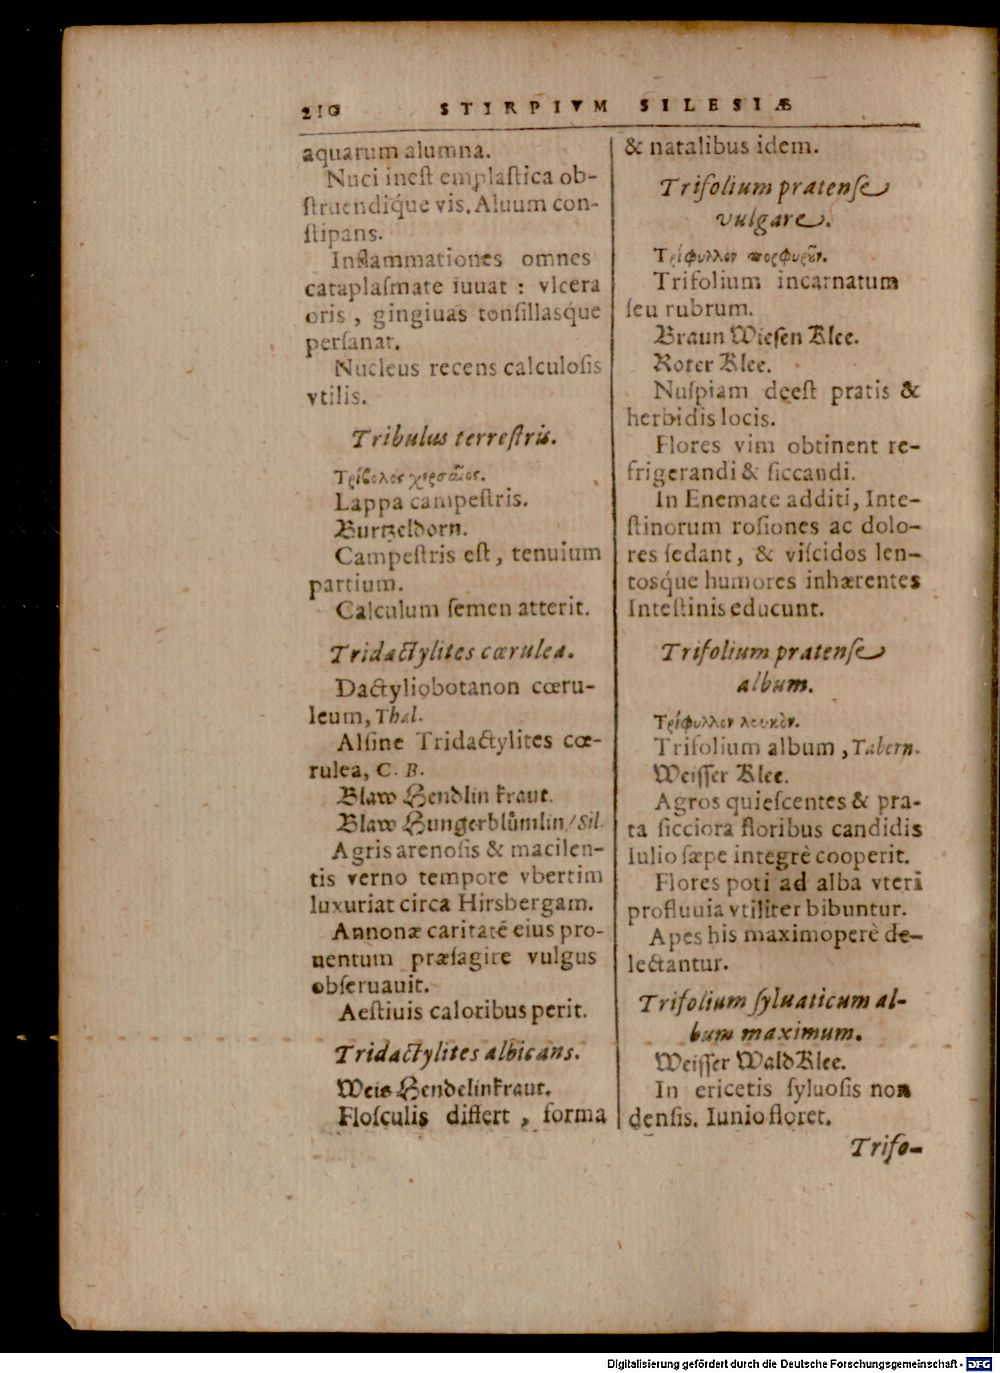 210 STIRPIVM SILESIÆ
aquarum alumna.
Nuci ineſt emplaſtica ob-
ſtruendiq́ue vis. Aluum con-
ſtipans.
Inflammationes omnes
cataplaſmate iuuat : vlcera
oris , gingiuas tonſillasque
perſanat.
Nucleus recens calculoſis
vtilis.
Tribulus terreſtris.
Τρίβολος χερσαῖος.
Lappa campeſtris.
Burtzeldorn.
Campeſtris eſt, tenuium
partium.
Calculum ſemen atterit.
Tridactylites cœrulea.
Dactyliobotanon cœru-
leum, Thal.
Alſine Tridactylites cœ-
rulea, C. B.
Blaw Hendlin kraut.
Blaw Hungerblůmlin/ Sil.
Agris arenoſis & macilen-
tis verno tempore vbertim
luxuriat circa Hirsbergam.
Annonæ caritatē eius pro-
uentum præſagire vulgus
obſeruauit.
Aeſtiuis caloribus perit.
Tridactylites albicans.
Weis Hendelinkraut.
Floſculis differt , forma
& natalibus idem.
Trifolium pratenſe
vulgare.
Τρίφυλλον πορφυρȣ̃ν.
Trifolium incarnatum
ſeu rubrum.
Braun Wieſen Klee.
Roter Klee.
Nuſpiam deeſt pratis &
herbidis locis.
Flores vim obtinent re-
frigerandi & ſiccandi.
In Enemate additi, Inte-
ſtinorum roſiones ac dolo-
res ſedant, & viſcidos len-
tosq́ue humores inhærentes
Inteſtinis educunt.
Trifolium pratenſe
album.
Τρίφυλλον λευκὸν.
Trifolium album , Tabern.
Weiſſer Klee.
Agros quieſcentes & pra-
ta ſicciora floribus candidis
Iulio ſæpe integrè cooperit.
Flores poti ad alba vteri
profluuia vtiliter bibuntur.
Apes his maximoperè de-
lectantur.
Trifolium ſyluaticum al-
bum maximum.
Weiſſer Wald Klee.
In ericetis ſyluoſis non
denſis. Iunio floret.
Trifo-
Digitalisierung gefördert durch die Deutsche Forschungsgemeinschaft - DFG